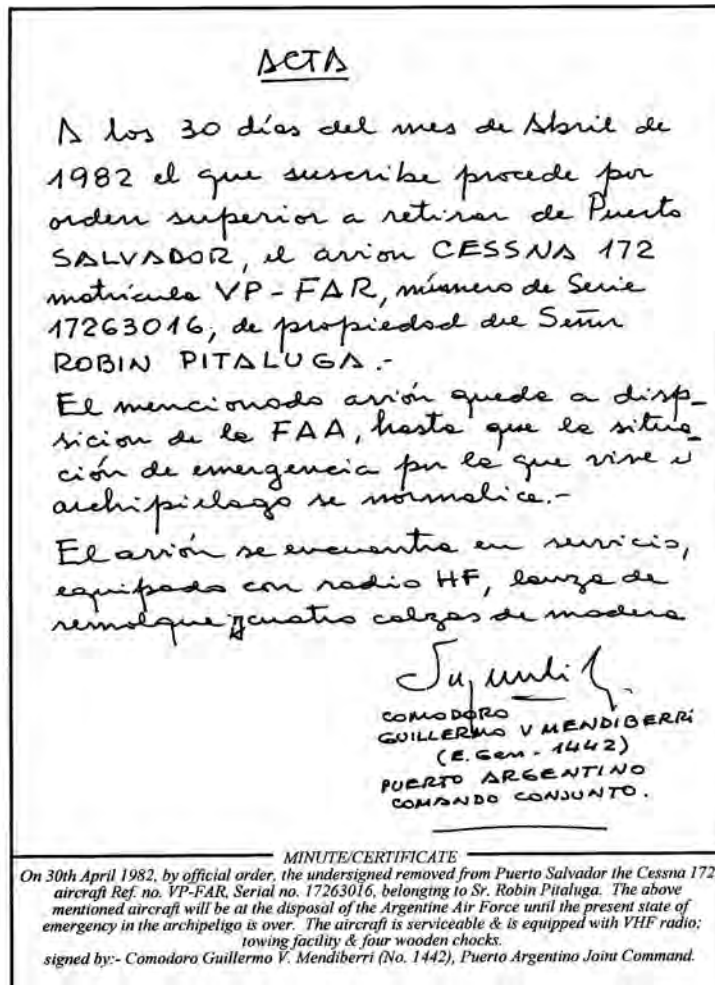 ACTA
A los 30 días del mes de Abril de
1982 el que suscribe procede por
orden superior a retirar de Puerto
SALVADOR, el avion CESSNA 172
matrícula VP-FAR, número de Serie
17263016, de propiedad de Señor
ROBIN PITALUGA.-
El mencionado avión queda a dispo-
sicion de la FAA, hasta que la situa-
ción de emergencia por la que vive el
archipiélago se normalice.-
El avión se encuentra en servicio,
equipado con radio HF, lanza de
remolque y cuatro calzas de madera
COMODORO
GUILLERMO V MENDIBERRI
(E. Gen - 1442)
PUERTO ARGENTINO
COMANDO CONJUNTO.
MINUTE/CERTIFICATE
On 30th April 1982, by official order, the undersigned removed from Puerto Salvador the Cessna 172
aircraft Ref. no. VP-FAR, Serial no. 17263016, belonging to Sr. Robin Pitaluga. The above
mentioned aircraft will be at the disposal of the Argentine Air Force until the present state of
emergency in the archipeligo is over. The aircraft is serviceable & is equipped with VHF radio;
towing facility & four wooden chocks.
signed by:- Comodoro Guillermo V. Mendiberri (No. 1442), Puerto Argentino Joint Command.